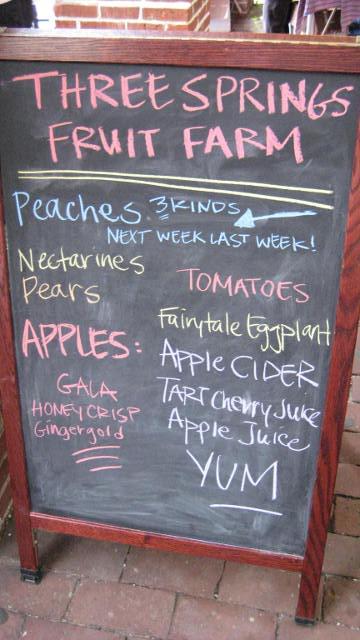 THREE SPRINGS
FRUIT FARM
Peaches 3 KINDS
NEXT WEEK LAST WEEK!
Nectarines
Pears
APPLES:
GALA
HONEYCRISP
Gingergold
TOMATOES
Fairytale Eggplant
Apple CIDER
TART Cherry Juice
Apple Juice
YUM